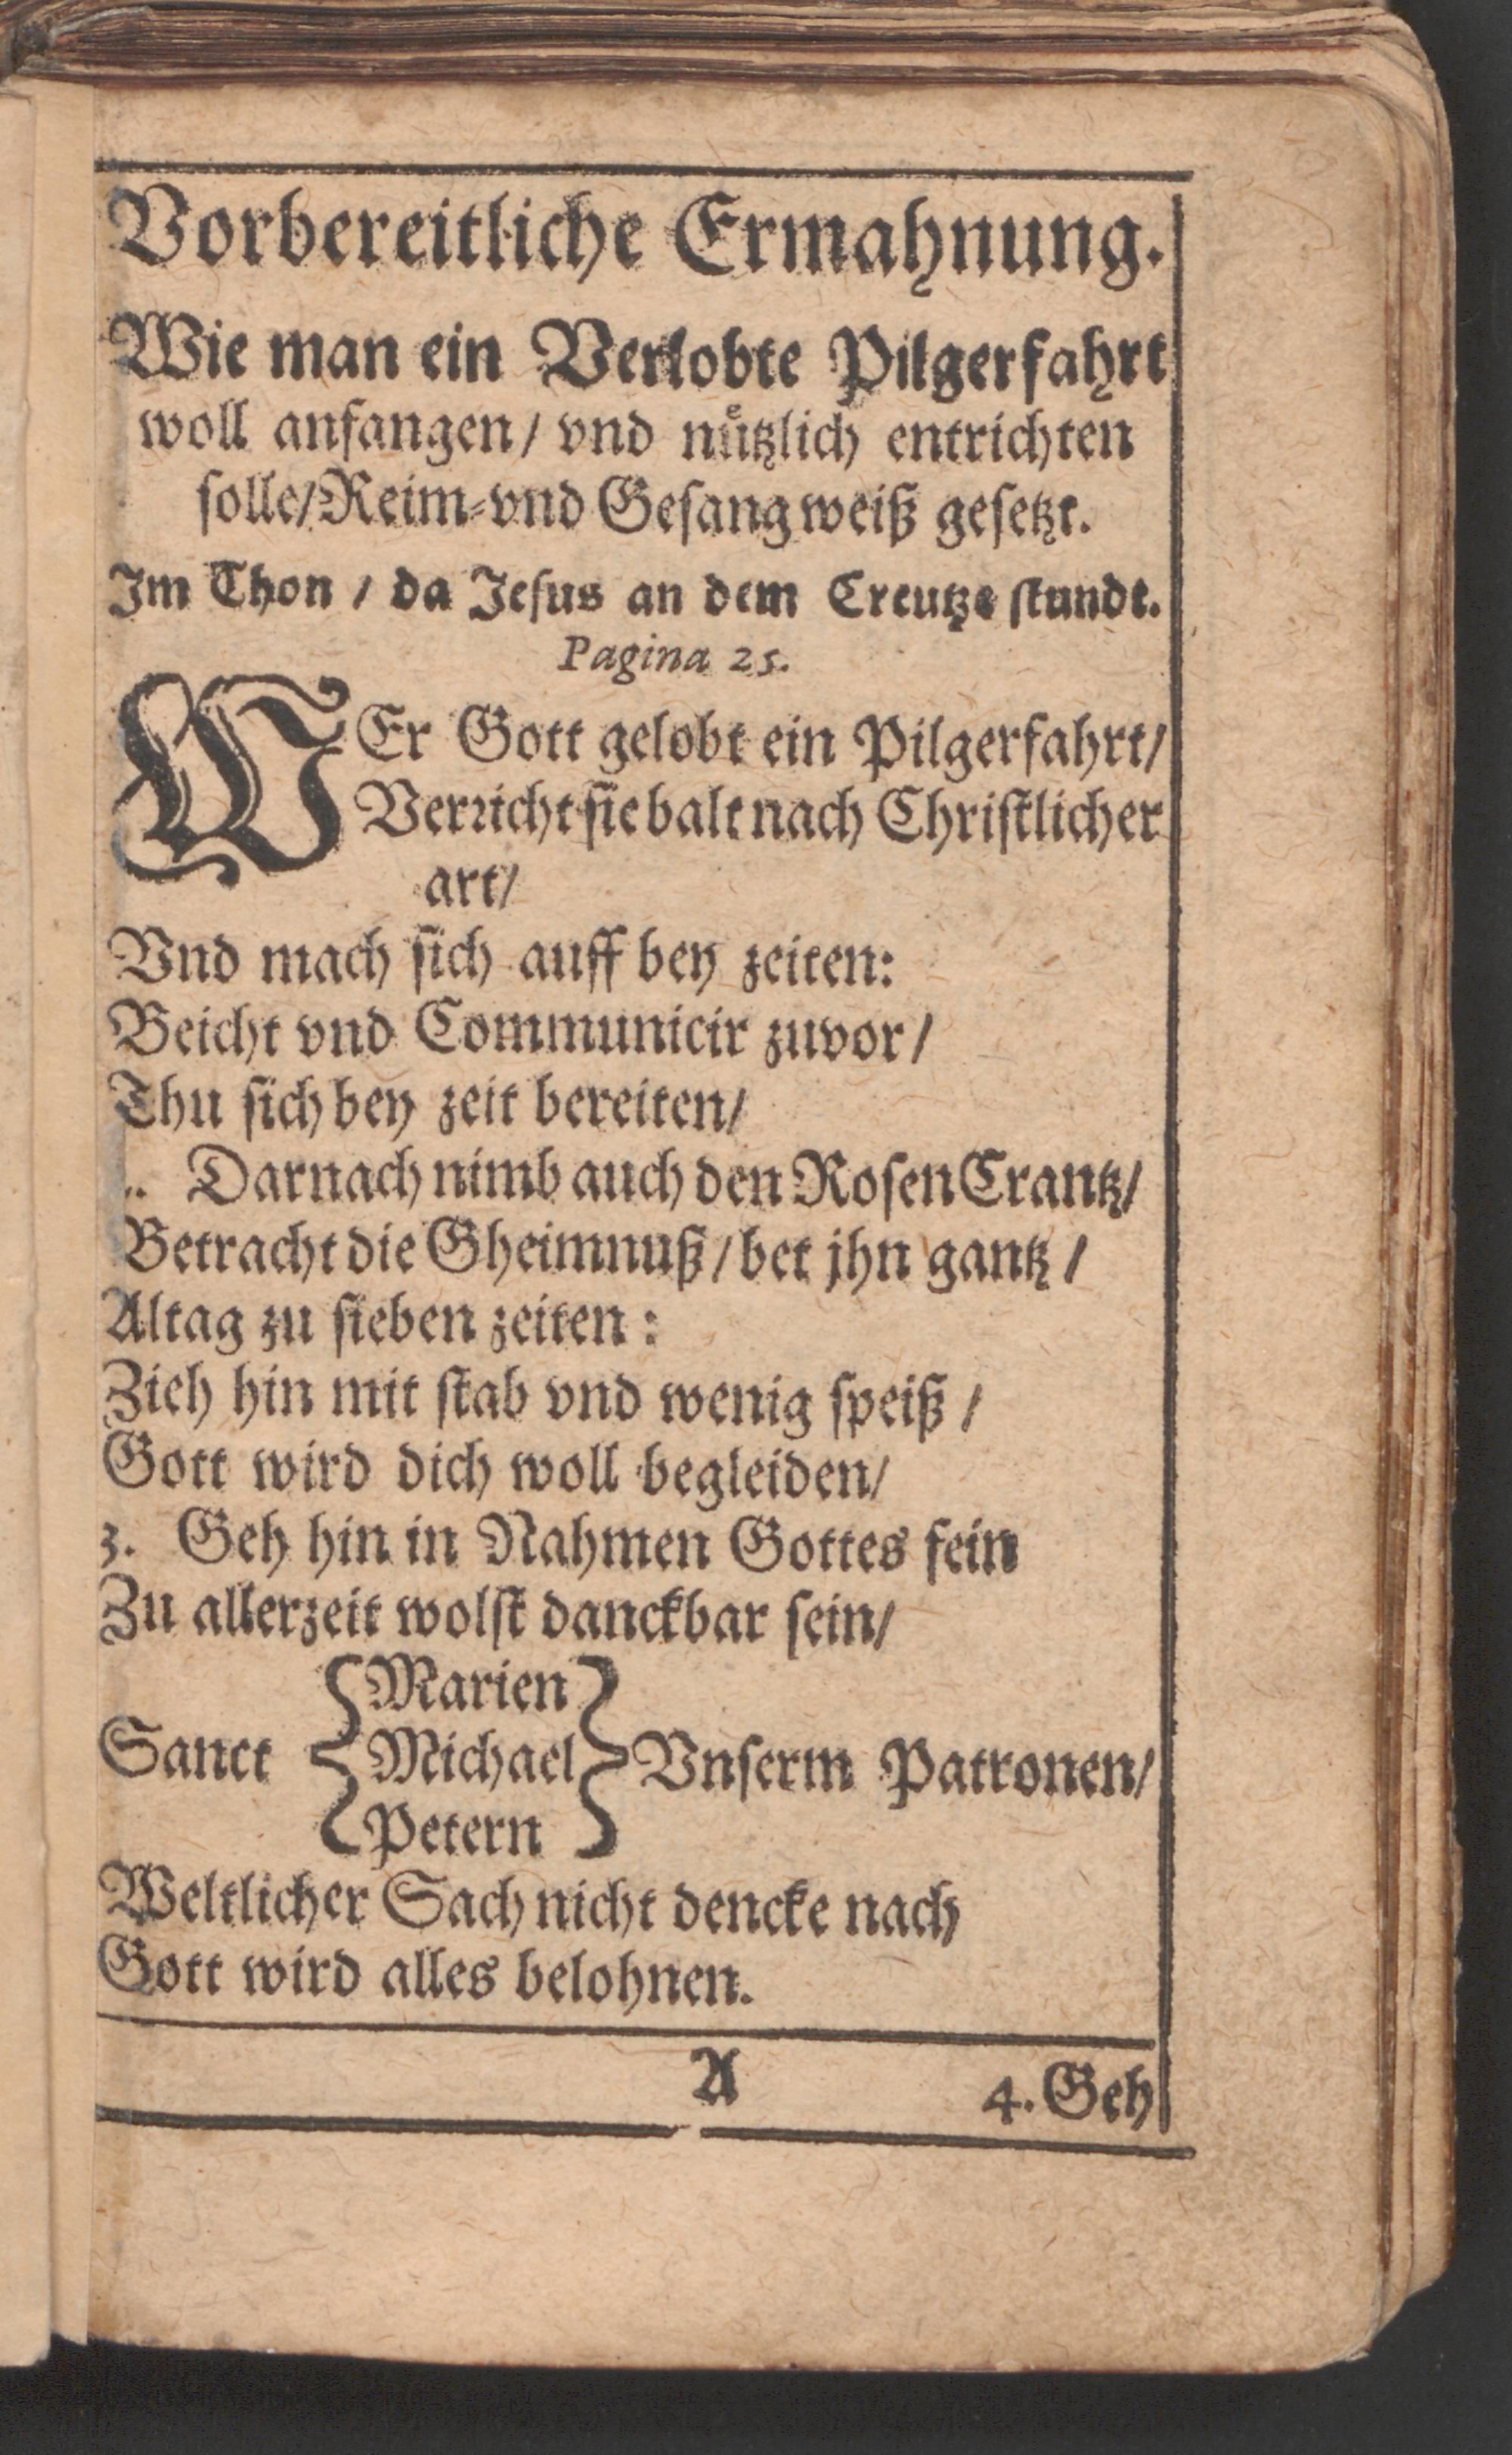 Vorbereitliche Ermahnung.
Wie man ein Verlobte Pilgerfahrt
woll anfangen/ vnd nuͤtzlich entrichten
solle/Reim-vnd Gesang weiß gesetzt.
Im Thon / da Jesus an dem Creutze stundt.
Pagina 25.
WEr Gott gelobt ein Pilgerfahrt/
Verricht sie balt nach Christlicher
art/
Vnd mach sich auff bey zeiten:
Beicht vnd Communicir zuvor/
Thu sich bey zeit bereiten/
Darnach nimb auch den Rosen Crantz/
Betracht die Gheimnuß/ bet jhn gantz/
Altag zu sieben zeiten:
Zieh hin mit stab vnd wenig speiß/
Gott wird dich woll begleiden/
3. Geh hin in Nahmen Gottes fein
Zu allerzeit wolst danckbar sein/
Marien
Sanct { Michael } Vnserm Patronen/
Petern
Weltlicher Sach nicht dencke nach
Gott wird alles belohnen.
A 4. Geh